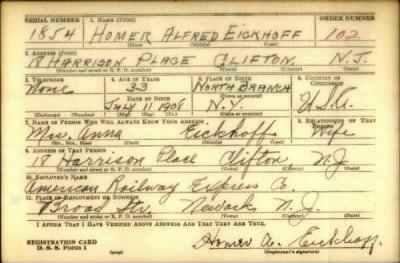 SERIAL NUMBER 1. NAME (Print) ORDER NUMBER
1854 HOMER ALFRED EICKHOFF 102
(First) (Middle) (Last)
2. ADDRESS (Print)
18 HARRISON PLACE CLIFTON, N.J.
(Number and street or R. F. D. number) (Town) (County) (State)
3. TELEPHONE 4. AGE IN YEARS 5. PLACE OF BIRTH 6. COUNTRY OF CITIZENSHIP
None 33 NORTH BRANCH
DATE OF BIRTH (Town or county)
JULY 11 1908 N.Y. U.S.A.
(Exchange) (Number) (Mo.) (Day) (Yr.) (State or country)
7. NAME OF PERSON WHO WILL ALWAYS KNOW YOUR ADDRESS 8. RELATIONSHIP OF THAT PERSON
Mrs. Anna Eickhoff Wife
(Mr., Mrs., Miss) (First) (Middle) (Last)
9. ADDRESS OF THAT PERSON
18 Harrison Place Clifton, N.J.
(Number and street or R. F. D. number) (Town) (County) (State)
10. EMPLOYER'S NAME
American Railway Express Co.
11. PLACE OF EMPLOYMENT OR BUSINESS
Broad Str. Newark N.J.
(Number and street or R. F. D. number) (Town) (County) (State)
I AFFIRM THAT I HAVE VERIFIED ABOVE ANSWERS AND THAT THEY ARE TRUE.
REGISTRATION CARD
D. S. S. Form 1 Homer A. Eickhoff
(Registrant's signature)